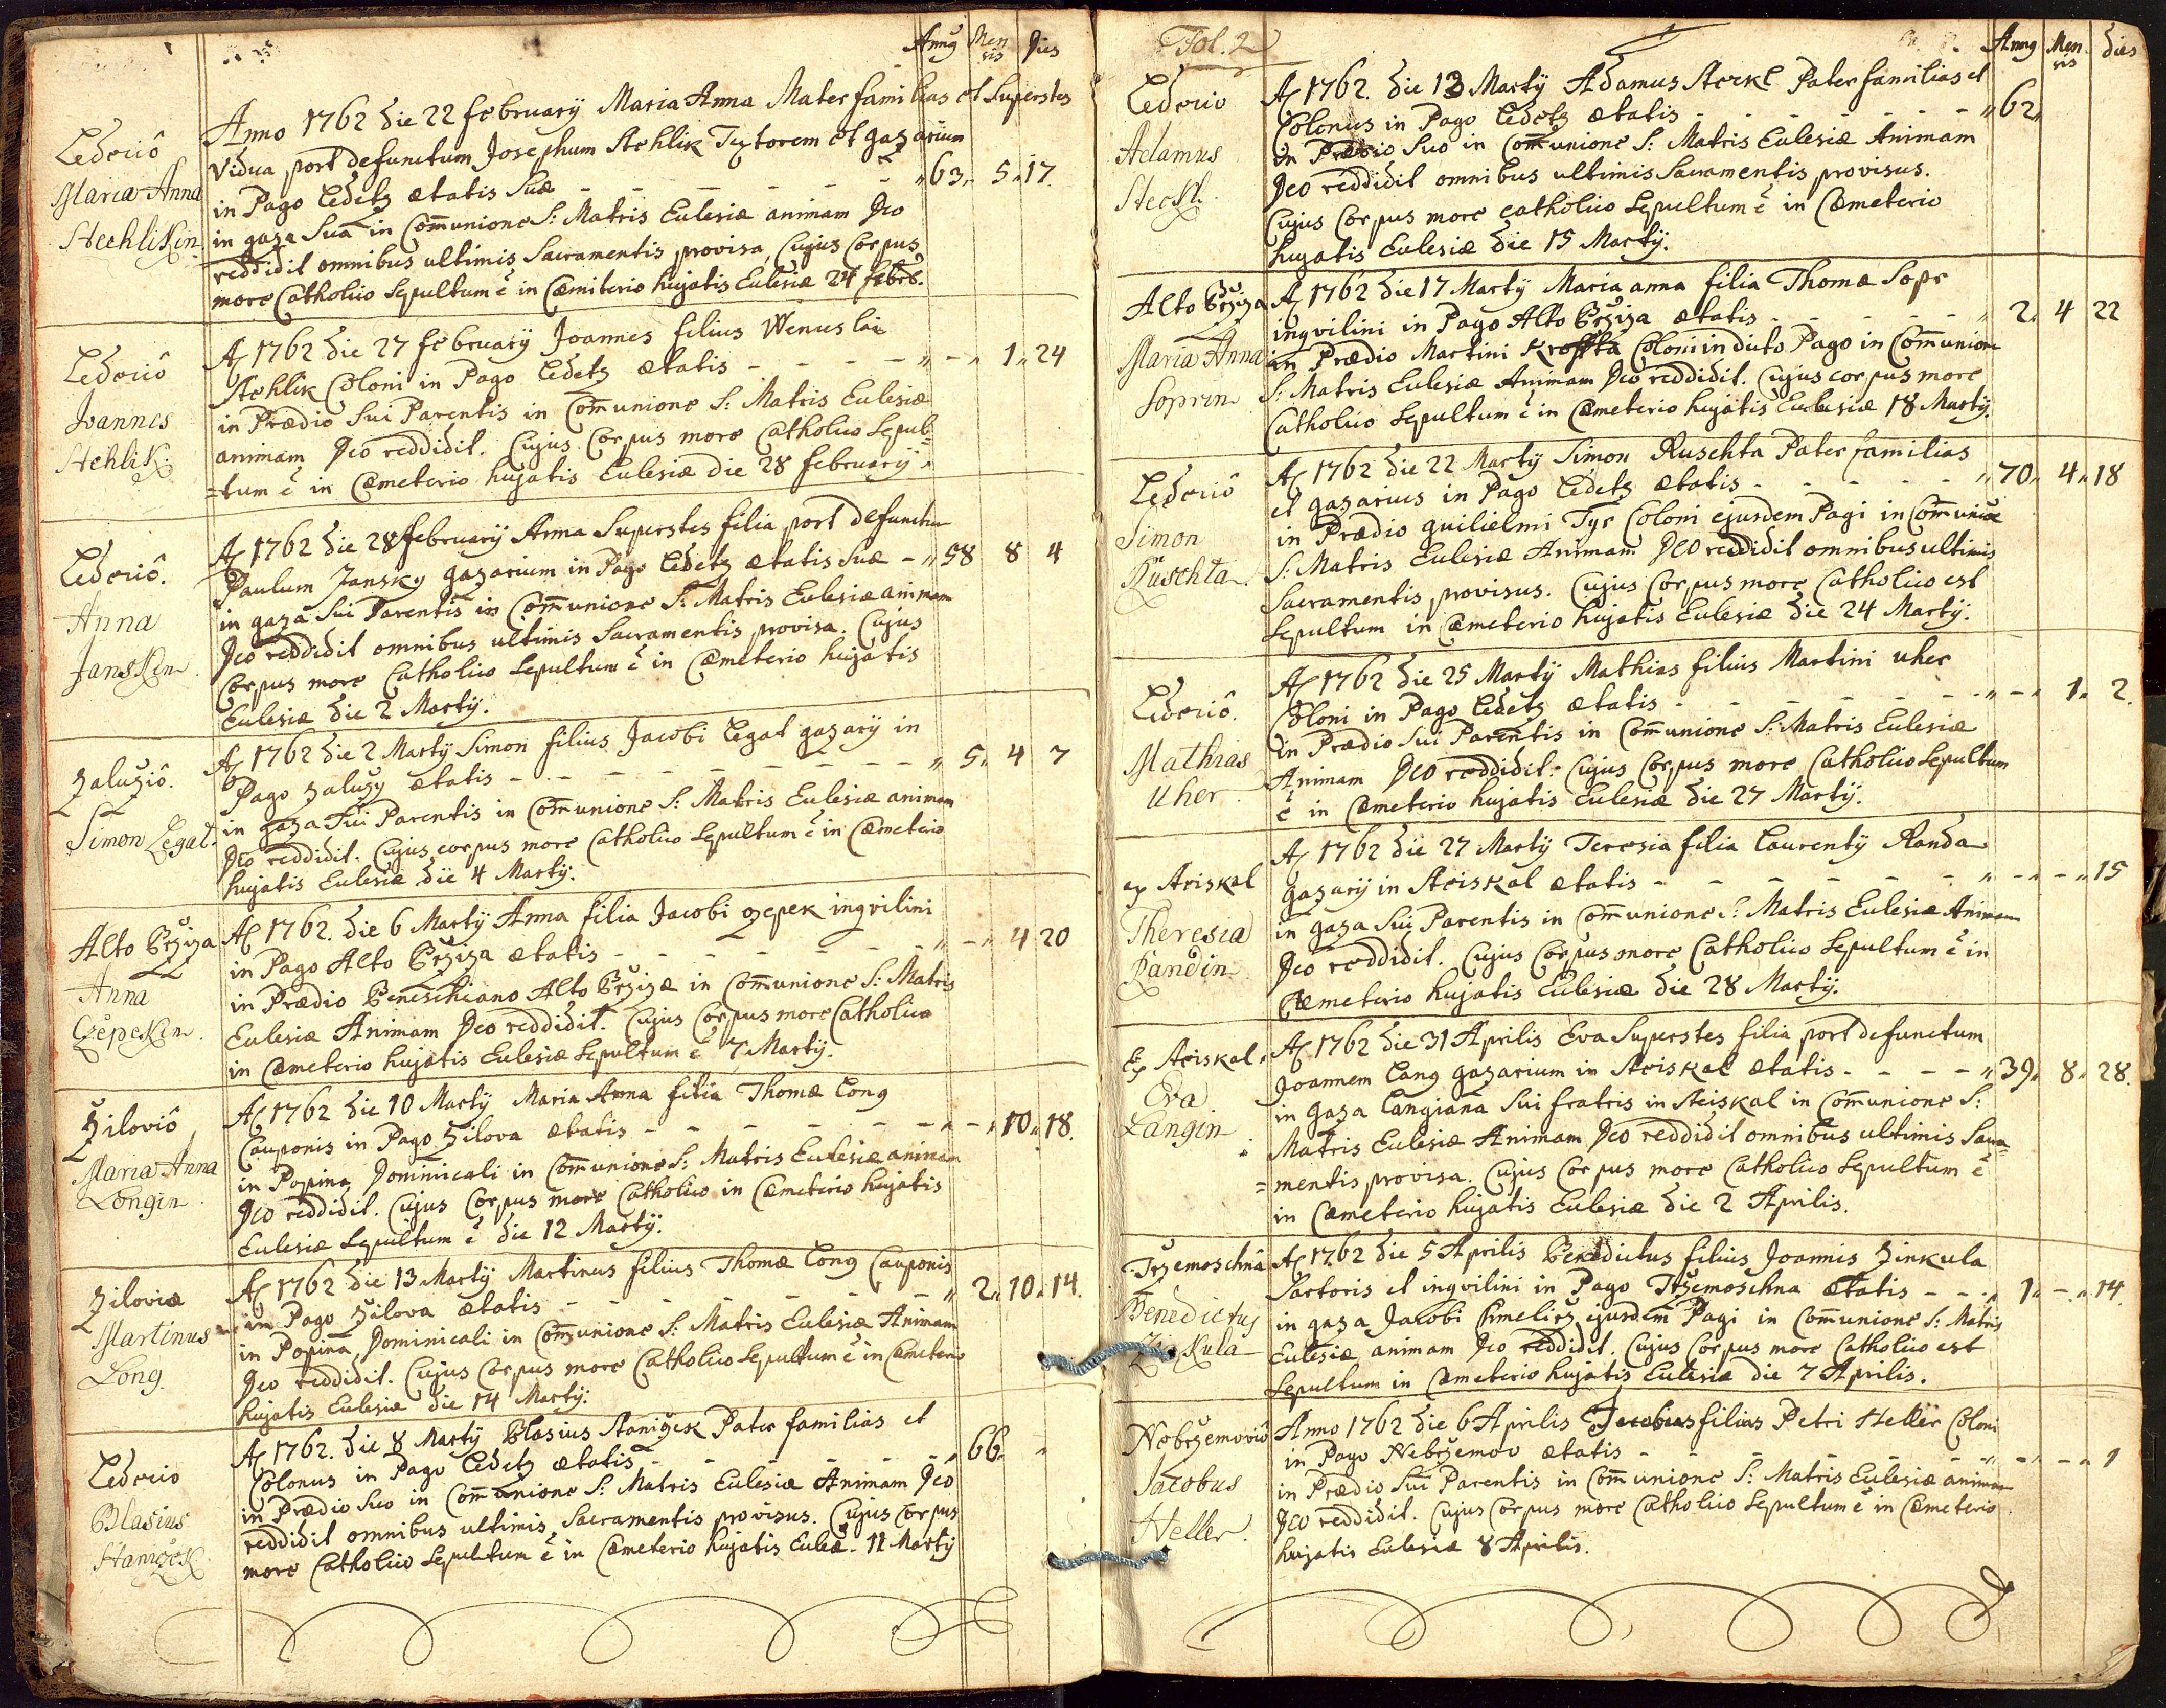 Annꝯ Men
sis Dies
Ledeciô
Maria Anna
Stechlikin
Anno 1762 die 22 february Maria Anna Mater familias et Superstes
vidua post defunctum Josephum Stehlik Textorem et gazarium
in Pago Ledetz ætatis Suæ - - - - - - - „ 63„ 5„ 17.
in gaza Sua in Com̄unione S: Matris Eulesiæ animam Deo
reddidit omnibus ultimis Sacramentis provisa, Cujus Corpus
more Catholico Sepultum ẽ in Cæmiterio hujatis Eulesiæ 24 febrB.
Ledeciô
Joannes
Stehlik
A͡o 1762 die 27 february Joannes filius Wenceslai
Stehlik Coloni in Pago Ledetz ætatis - - - - - „ - „ 1„ 24
in Prædio Sui Parentis in Com̄unione S: Matris Eulesiæ
animam Deo reddidit. Cujus Corpus more Catholico Sepul=
=tum ẽ in Cæmeterio hujatis Eulesiæ die 28 february.
Ledeciô.
Anna
Janskin
A͡o 1762 die 28 february Anna Superstes filia post defunctum
Paulum Jansky gazarium in Pago Ledetz ætatis Suæ - „ 58 8 4
in gaza Sui Parentis in Com̄unione S: Matris Eulesiæ animam
Deo reddidit omnibus ultimis Sacramentis provisa. Cujus
Corpus more Catholico Sepultum ẽ in Cæmeterio hujatis
Eulesiæ die 2 Martÿ.
Zaluziô.
Simon Legat.
A͡o 1762 die 2 Martÿ Simon filius Jacobi Legat gazarÿ in
Pago Zaluzy ætatis - - - - - - - - „ 5„ 4 7
in gaza Sui Parentis in Com̄unione S: Matris Eulesiæ animam
Deo reddidit. Cujus corpus more Catholico Sepultum ẽ in Cæmeterio
hujatis Eulesiæ die 4 Martÿ.
Alto Brziza
Anna
Czepekin
A͡o 1762. die 6 Martÿ Anna filia Jacobi czepek inqvilini
in Pago Alto Brziza ætatis - - - - - - „ - „ 4 20
in Prædio Beneschiano Alto Brzizæ in Com̄unione S: Matris
Eulesiæ Animam Deo reddidit. Cujus Corpus more Catholico
in Cæmeterio hujatis Eulesiæ Sepultum ẽ 7 Martÿ.
Ziloviô
Maria Anna
Longin
A͡o 1762 die 10 Martÿ Maria Anna filia Thomæ Long
Cauponis in Pago Zilova ætatis - - - - - - „ - „ 10„ 18.
in Popina Dominicali in Com̄unione S: Matris Eulesiæ animam
Deo reddidit. Cujus Corpus more Catholico in Cæmeterio hujatis
Eulesiæ Sepultum ẽ die 12 Martÿ.
Ziloviæ
Martinus
Long
A͡o 1762 die 13 Martÿ Martinus filius Thomæ Long Cauponis
in Pago Zilova ætatis - - - - - - „ 2„ 10„ 14.
in Popina Dominicali in Com̄unione S: Matris Eulesiæ Animam
Deo reddidit. Cujus Corpus more Catholico Sepultum ẽ in Cæmeterio
hujatis Eulesiæ die 14 Martÿ:
Ledecio
Blasius
Staniczek
A͡o 1762. die 8 Martÿ Blasius Staniczek Pater familias et
Colonus in Pago Ledetz ætatis - - - - - - „ 66„ „
in Prædio Suo in Com̄unione S: Matris Eulesiæ Animam Deo
reddidit omnibus ultimis Sacramentis provisus. Cujus Corpus
more Catholico Sepultum ẽ in Cæmeterio hujatis Eulēæ. 11 Martÿ
Fol. 2
Annꝯ Men
sis dies
Ledecio
Adamus
Sterkl.
A͡o 1762. die 13 Martÿ Adamus Sterkl Pater familias et
Colonus in Pago Ledetz ætatis - - - - - - „ 62„
in Prædio Suo in Com̄unione S: Matris Eulesiæ Animam
Deo reddidit omnibus ultimis Sacramentis provisus.
Cujus Corpus more catholico Sepultum ẽ in Cæmeterio
hujatis Eulesiæ die 15 Martÿ.
Alto Brziza
Maria Anna
Soprin
A͡o 1762 die 17 Martÿ Maria anna filia Thomæ Sopr
inqvilini in Pago Alto Brziza ætatis - - - - - „ 2„ 4 22
in Prædio Martini Krofta Coloni in dicto Pago in Com̄unione
S: Matris Eulesiæ Animam Deo reddidit. Cujus corpus more
Catholico Sepultum ẽ in Cæmeterio hujatis Eulesiæ 18 Martÿ.
Ledeciô
Simon
Ruschta
A͡o 1762 die 22 Martÿ Simon Ruschta Pater familias
et gazarius in Pago Ledetz ætatis - - - - - „ 70„ 4„ 18
in Prædio guilielmi Tyr Coloni ejusdem Pagi in Com̄unione
S: Matris Eulesiæ Animam Deo reddidit omnibus ultimis
Sacramentis provisus. Cujus Corpus more Catholico est
Sepultum in Cæmeterio hujatis Eulesiæ die 24 Martÿ.
Ledeciô.
Mathias
Uher
A͡o 1762 die 25 Martÿ Mathias filius Martini uher
Coloni in Pago Ledetz ætatis - - - - - - „ - „ 1„ 2.
in Prædio Sui Parentis in Com̄unione S: Matris Eulesiæ
Animam Deo reddidit. Cujus Corpus more Catholico Sepultum
ẽ in Cæmeterio hujatis Eulesiæ die 27 Martÿ.
ex Striskal
Theresia
Randin
A͡o 1762 die 27 Martÿ Teresia filia Laurentÿ Randa
gazarÿ in Striskal ætatis - - - - - - „ - „ - „ 15
in gaza Sui Parentis in Com̄unione S: Matris Eulesiæ Animam
Deo reddidit. Cujus Corpus more Catholico Sepultum ẽ in
Cæmeterio hujatis Eulesiæ die 28 Martÿ.
Ex Striskal.
Eva
Langin
A͡o 1762 die 31 Aprilis Eva Superstes filia post defunctum
Joannem Lang gazarium in Striskal ætatis - - - - „ 39„ 8„ 28.
in gaza Langiana Sui fratris in Striskal in Com̄unione S:
Matris Eulesiæ Animam Deo reddidit omnibus ultimis Sacra=
=mentis provisa. Cujus Corpus more Catholico Sepultum ẽ
in Cæmeterio hujatis Eulesiæ die 2 Aprilis.
Trzemoschnâ
Benedictus
Zinkula
A͡o 1762 die 5 Aprilis Benedictus filius Joannis Zinkula
Sartoris et inqvilini in Pago Trzemoschna ætatis - - „ 1„ - „ 14.
in gaza Jacobi Chmelirz ejusdem Pagi in Com̄unione S: Matris
Eulesiæ animam Deo reddidit. Cujus Corpus more Catholico est
Sepultum in Cæmeterio hujatis Eulesiæ die 7 Aprilis.
Nebrzemoviô
Jacobus
Heller.
Anno 1762 die 6 Aprilis Jacobus filius Petri Heller Coloni
in Pago Nebrzemov ætatis - - - - - - „ - „ - „ 1
in Prædio Sui Parentis in Com̄unione S: Matris Eulesiæ animam
Deo reddidit. Cujus Corpus more Catholico Sepultum ẽ in Cæmeterio
hujatis Eulesiæ 8 Aprilis.